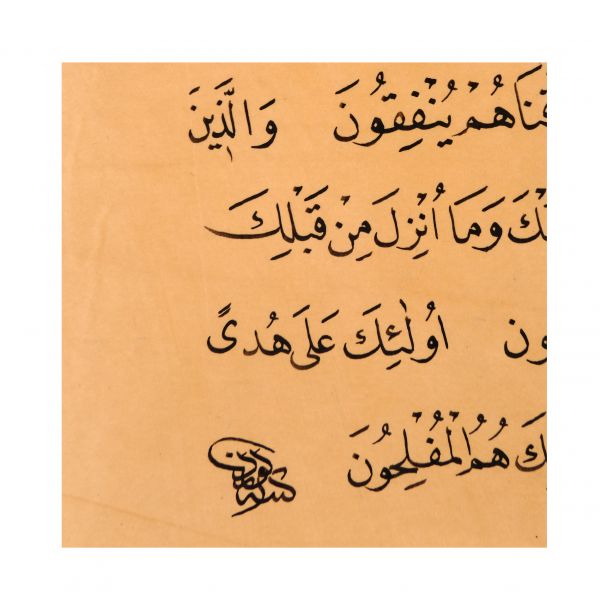 قْنَاهُمْ يُنْفِقُونَ وَالَّذِينَ
وَمَا أُنْزِلَ مِنْ قَبْلِكَ
ون أُولٰئِكَ عَلَى هُدًى
كَ هُمُ الْمُفْلِحُونَ